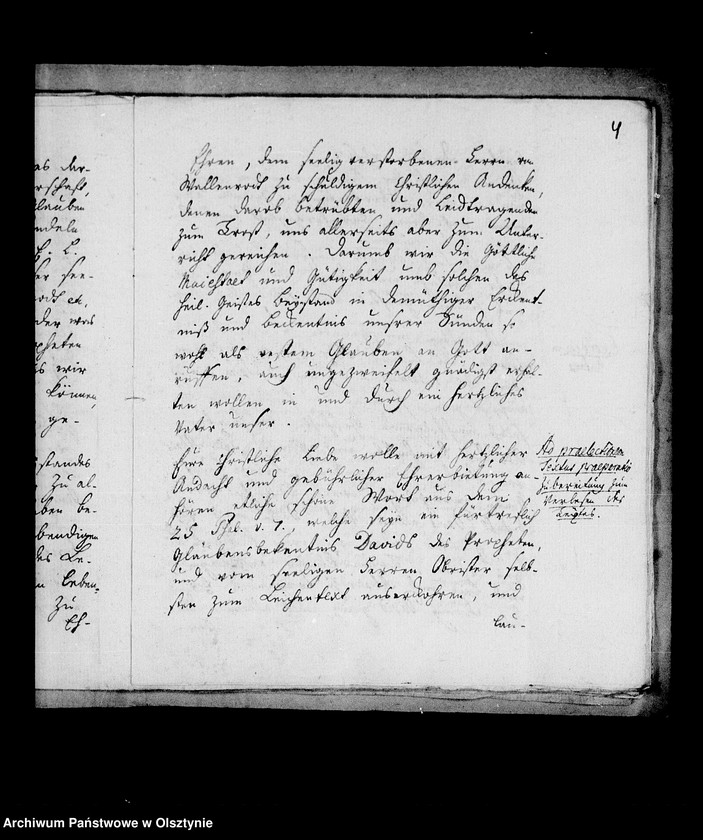 4
Ehren, dem seelig verstorbenen Herrn von
Wallenrodt zu schuldigem Christlichen Andenken,
denen darob betrübten und Leidtragenden
zum Trost, uns allerseits aber zum Unter-
richt gereichen. Darumb wir die Göttliche
Maiestaet und Gütigkeit umb solchen des
heil. Geistes beystand in demüthiger Erkent-
niß und bekentnis unsrer Sünden so
wohl als vestem Glauben an Gott an-
ruffen, auch ungezweifelt gnädigst erhal-
ten wollen in und durch ein hertzliches
Vater unser.
Eure Christliche Liebe wolle mit hertzlicher
Andacht und gebührlicher Ehrerbietung an-
hören etliche schöne Wort aus dem
25 Psal. v. 1., welche seyn ein fürtreflich
Glaubensbekentnis Davids des Propheten,
und vom seeligen Herren Obrister selb-
sten zum Leichentext auserkohren, und
lau-
Ad praelectionem
Textus praeparatio
Zubereitung zum
Verlesen des
Textes.
as der-
rschaft,
lauben
ndeln
E. L.
er see-
odt etc.
der was
pheten
s wir
können,
ge-
standes
zu al-
ben be-
bendigen
des Le-
n leben,
zu
Eh-
Archiwum Państwowe w Olsztynie